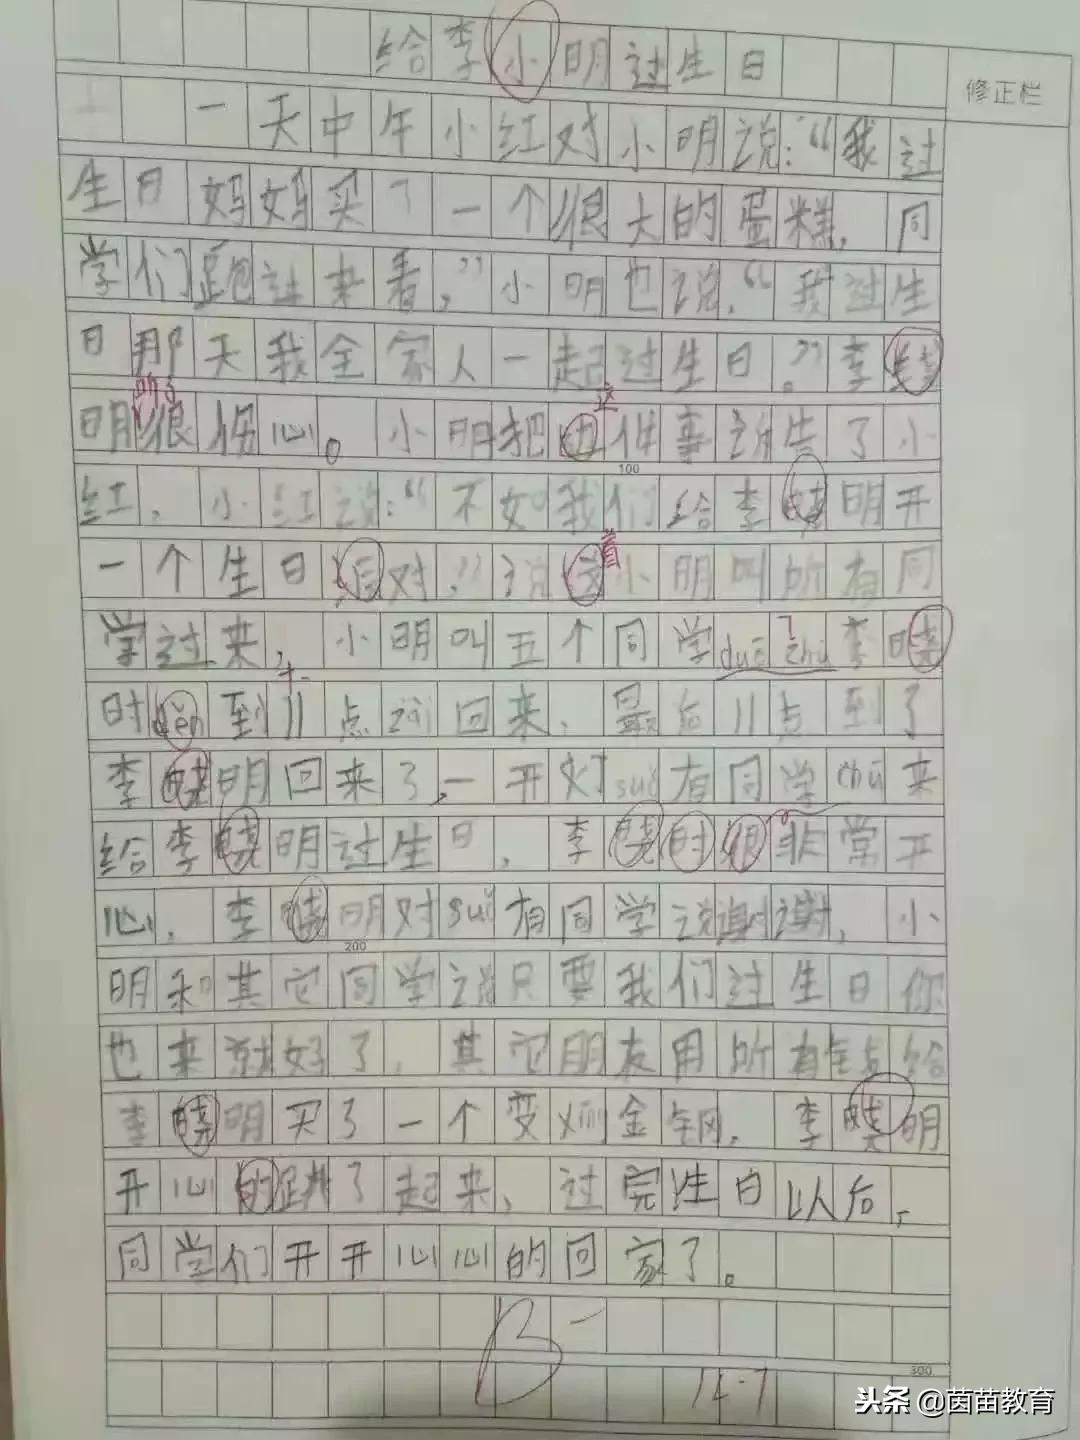 给李小明过生日
修正栏
一天中午小红对小明说:“我过
生日妈妈买了一个很大的蛋糕,同
学们跑过来看,”小明也说,“我过生
日那天我全家人一起过生日。”李晓
听了
明很伤心。小明把边件事诉告了小
这
100
红,小红说:“不如我们给李晓明开
一个生日派对,”说这小明叫所有同
着
学过来,小明叫五个同学duō zhù李晓
十一
时děn到11点zài回来、最后11点到了
李晓明回来了,一开灯suǒ有同学chū来
给李晓明过生日,李晓时很非常开
心,李晓明对suǒ有同学说谢谢,小
200
明和其它同学说只要我们过生日你
也来就好了,其它朋友用所有钱给
李晓明买了一个变xīn金钢,李晓明
开心的跳了起来、过完生日以后,
同学们开开心心的回家了。
B-
300
12-7
头条@茵苗教育